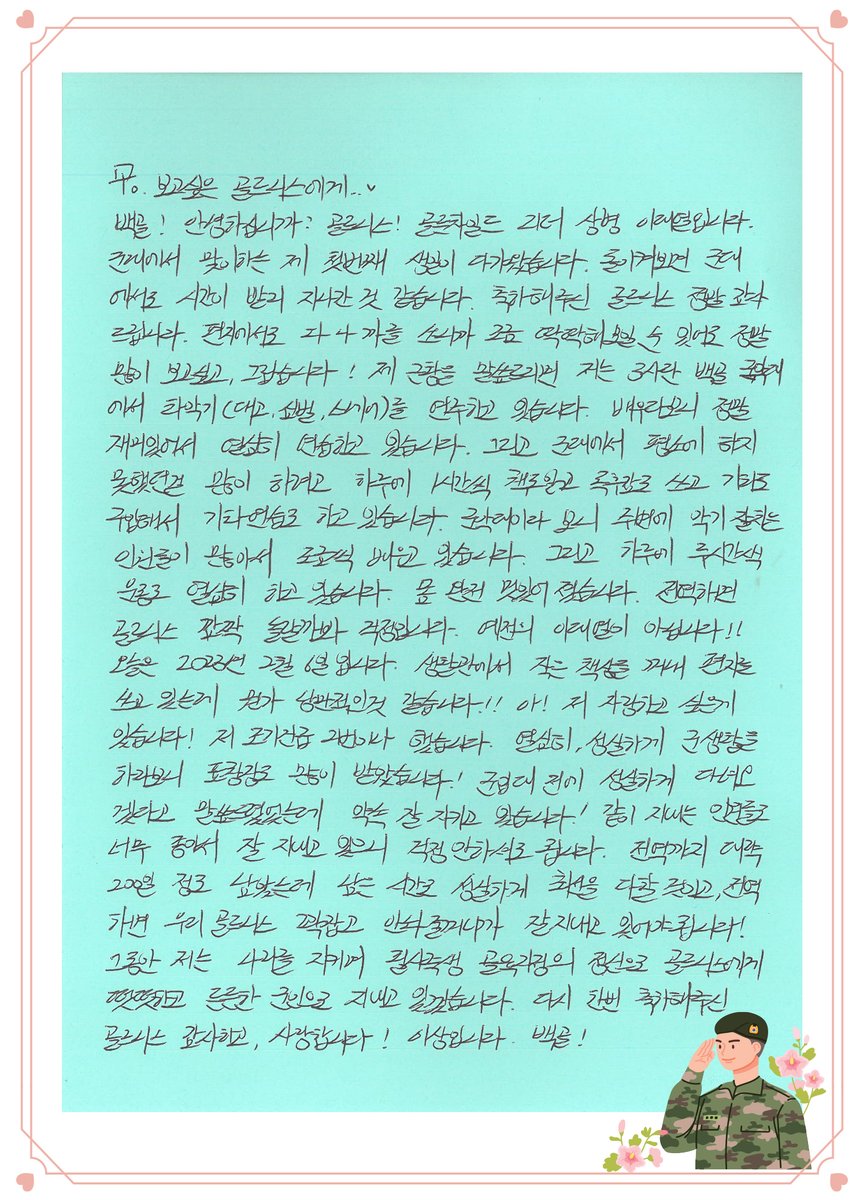 To. 보고싶은 골드니스에게..
백골! 안녕하십니까? 골드니스! 골든차일드 리더 상병 이대열입니다.
군대에서 맞이하는 제 첫번째 생일이 다가왔습니다. 돌이켜보면 군대
에서도 시간이 빨리 지나간 것 같습니다. 축하해주신 골드니스 정말 감사
드립니다. 편지에서도 다 나 까를 쓰니까 조금 딱딱해보일 수 있어도 정말
많이 보고싶고, 그립습니다! 제 근황을 말씀드리면 저는 3사단 백골 군악대
에서 타악기(대고, 심벌, 스네어)를 연주하고 있습니다. 배우다보니 정말
재미있어서 열심히 연습하고 있습니다. 그리고 군대에서 평소에 하지
못했던걸 많이 하려고 하루에 1시간씩 책도읽고 독후감도 쓰고 기타도
구입해서 기타연습도 하고 있습니다. 군악대이다 보니 주변에 악기 잘하는
인원들이 많아서 조금씩 배우고 있습니다. 그리고 하루에 두시간씩
운동도 열심히 하고 있습니다. 몸 완전 멋있어 졌습니다. 전역하면
골드니스 깜짝 놀랄까봐 걱정입니다. 예전의 이대열이 아닙니다!!
오늘은 2023년 2월 6일 입니다. 생활관에서 작은 책상을 꺼내 편지를
쓰고 있는데 뭔가 낭만적인것 같습니다!! 아! 저 자랑하고 싶은게
있습니다! 저 조기진급 2번이나 했습니다. 열심히, 성실하게 군생활을
하다보니 표창장도 많이 받았습니다! 군입대 전에 성실하게 다녀오
겠다고 말씀드렸었는데 약속 잘 지키고 있습니다! 같이 지내는 인원들도
너무 좋아서 잘 지내고 있으니 걱정 안하셔도 됩니다. 전역까지 대략
200일 정도 남았는데 남은 시간도 성실하게 최선을 다할 것이고, 전역
하면 우리 골드니스 꽉잡고 안놔 줄거니까 잘 지내고 있어야 됩니다!
그동안 저는 나라를 지키며 필사즉생 골육지정의 정신으로 골드니스에게
떳떳하고 든든한 군인으로 지내고 있겠습니다. 다시 한번 축하해주신
골드니스 감사하고, 사랑합니다! 이상입니다. 백골!